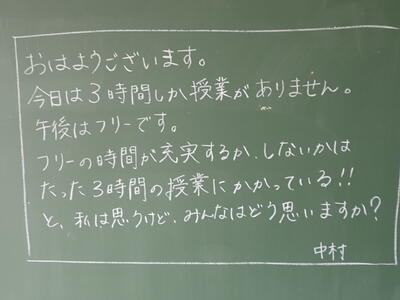 おはようございます。
今日は3時間しか授業がありません。
午後はフリーです。
フリーの時間が充実するか、しないかは
たった3時間の授業にかかっている!!
と、私は思うけど、みんなはどう思いますか?
中村